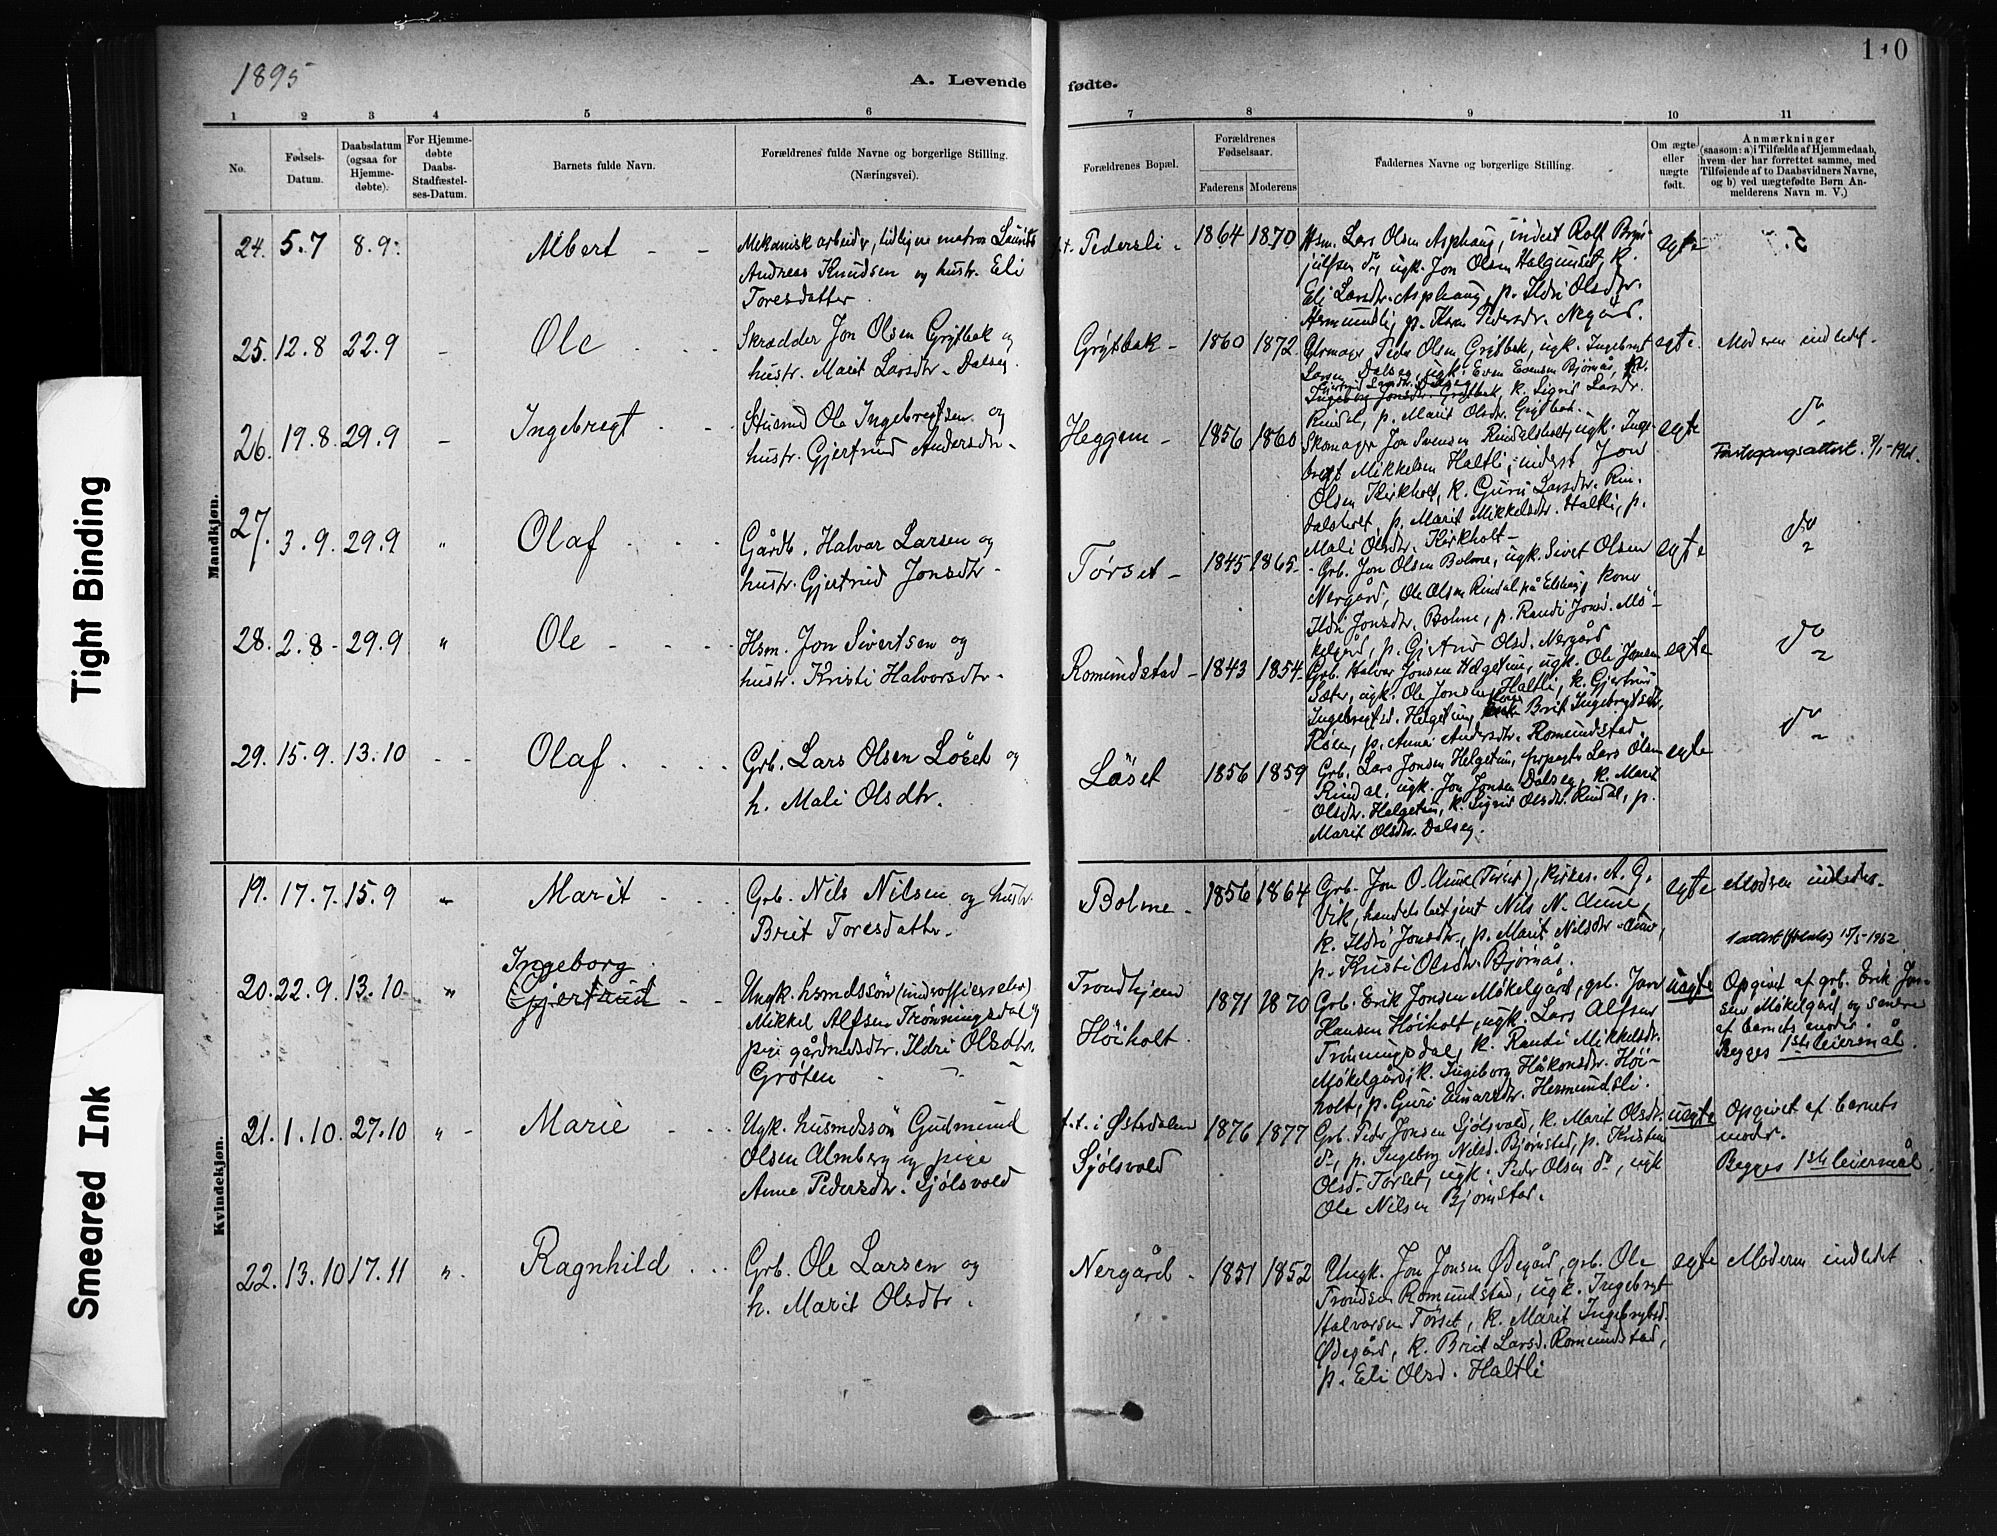 1895
A. Levende fødte.
110
1 2 3 4 5 6 7 8 9 10 11
No.
Fødsels-Datum.
Daabsdatum (ogsaa for Hjemme-døbte).
For Hjemme-døbte Daabs-Stadfæstel-ses-Datum.
Barnets fulde Navn.
Forældrenes fulde Navne og borgerlige Stilling. (Næringsvei).
Forældrenes Bopæl.
Forældrenes Fødselsaar.
Faderens Moderens
Faddernes Navne og borgerlige Stilling.
Om ægte eller uægte født.
Anmærkninger
(saasom: a) i Tilfælde af Hjemmedaab, hvem der har forrettet samme, med Tilføiende af to Daabsvidners Navne, og b) ved uægtefødte Børn An-melderens Navn m. V.)
Mandkjøn.
24. 5.7 8.9. Albert - -
Mekanisk arbeider, tidligere matros Laurits
Andreas Knudsen og hustr. Eli
Toresdatter.
f.t. Pedersli - 1864 1870
Hsm. Lars Olsen Asphaug, inderst Rolf Bryn-
julfsen do, ugk. Jon Olsen Halgunset, k.
Eli Larsdtr. Asphaug, p. Ildri Olsdtr.
Hermundsli, p. Karen Pedersdr. Negård.
egte
25. 12.8 22.9 - Ole - - -
Skrædder Jon Olsen Grytbak og
hustr. Marit Larsdtr. Dalseg.
Grytbak - 1860 1872
Peder Olsen Grytbak, ugk. Ingebrigt
Larsen Dalseg, ugk. Even Evensen Bjørnås, k.
Ingeborg Jonsdtr. Grytbak, k. Sigrid Larsdr.
Rindal, p. Marit Olsdtr. Grytbak.
egte. Moderen indledet.
26. 19.8 29.9 - Ingebregt - - -
Husmd Ole Ingebregtsen og
hustr. Gjertrud Andersdtr -
Heggem - 1856 1860
Skomager Jon Svensen Rindalsholt, ugk. Inge-
bregt Mikkelsen Haltli, inderst Jon
Olsen Kirkholt, k. Guru Larsdtr. Rin-
dalsholt, p. Marit Mikkelsdr. Haltli, p.
Mali Olsdtr. Kirkholt -
egte do
27. 3.9. 29.9 " Olaf - - -
Gårdb. Halvar Larsen og
hustr. Gjertrud Jonsdtr -
Tørset - 1845 1865 -
Grb. Jon Olsen Bolme, ugk. Sivert Olsen
Nergård, Ole Olsen Rindal på Elshaug, kone
Ildri Jonsdtr. Bolme, p. Randi Jonsd. Mø-
kelgård, p. Gjertrud Olsd. Nergård
egte do
28. 2.8 - 29.9 " Ole - - - -
Hsm. Jon Sivertsen og
hustr. Kristi Halvorsdtr -
Romundstad - 1843 1854 -
Grb. Halvor Jonsen Helgetun, ugk. Ole Jonsen
Sæter, ugk. Ole Jonsen Haltli, k. Gjertrud
Ingebregtsd. Helgetun, kone Brit Ingebrigtsdtr
p. Anne Andersdtr. Romundstad.
egte do
29. 15.9. 13.10 - - Olaf - - - -
Grb. Lars Olsen Løset og
h. Mali Olsdtr.
Løset 1856 1859
Grb. Lars Jonsen Helgetun, Lars Olsen
Rindal, ugk. Jon Jonsen Dalseg, k. Marit
Olsdtr. Helgetun, k. Sigrid Olsdtr. Rindal, p.
Marit Olsdtr. Dalseg.
egte do
Kvindekjøn.
19. 17.7. 15.9 " Marit - - -
Grb. Nils Nilsen og hustr.
Brit Toresdatter.
Bolme - 1856 1864
Grb. Jon O. Aune (Tørset), kirkes. A. G.
Vik, handelsbetjent Nils N. Aune,
k. Ildri Jonsdtr., p. Marit Nilsdtr. Aune,
p. Kristi Olsdtr. Bjørnås.
egte Moderen indledet.
20. 22.9. 13.10 - " Ingeborg
Gjertrud - -
Ungk. husmdssøn (underofficerselev)
Mikkel Alfsen Trønningsdal og
pige gårdmdsdtr. Ildri Olsdtr.
Grøten - - -
Trondhjem
Høiholt.
1871 1870
Grb. Erik Jonsen Møkelgård, grb. Jon
Hansen Høiholt, ugk. Lars Alfsen
Trønningsdal, k. Randi Mikkelsdr.
Møkelgård, k. Ingeborg Håkonsdr. Høi-
holt, p. Guri Einarsdtr. Hermundsli.
uegte
Opgivet af grb. Erik Jon-
sen Møkelgård og senere
af barnets moder.
Begges 1ste leiermål.
21. 1.10. 27.10 " - Marie - - -
Ugk. husmdssøn Gudmund
Olsen Almberg og pige
Anne Pedersdtr. Sjølsvold
f.t. i Østerdalen
Sjølsvold
1876 1877
Grb. Peder Jonsen Sjølsvold, k. Marit Olsdtr.
do, p. Ingeborg Nilsd. Bjørnstad, p. Kristine
Olsd. Tørset, ugk. Peder Olsen do, ugk
Ole Nilsen Bjørnstad.
uegte
Opgivet af barnets
moder.
Begges 1ste leiermål.
22. 13.10 17.11 ". Ragnhild - - -
Grb. Ole Larsen og
h. Marit Olsdtr.
Nergård - 1851 1852
Ungk. Jon Jonsen Ødegård, grb. Ole
Trondsen Romundstad, ugk. Ingebrigt
Halvorsen Tørset, k. Marit Ingebrigtsd.
Ødegård, k. Brit Larsd. Romundstad,
p. Eli Olsd. Haltli
egte Moderen indledet
Tight Binding
Smeared Ink